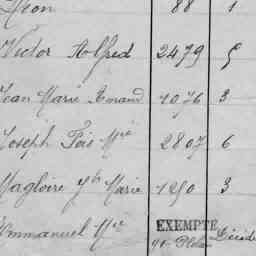 Léon 88 1
Victor Alfred 2479 5
Jean Marie Armand 1076 3
Joseph Fois Mie 2807 6
Magloire Yes Marie 1290 3
Emmanuel Mie EXEMPTÉ Décédé